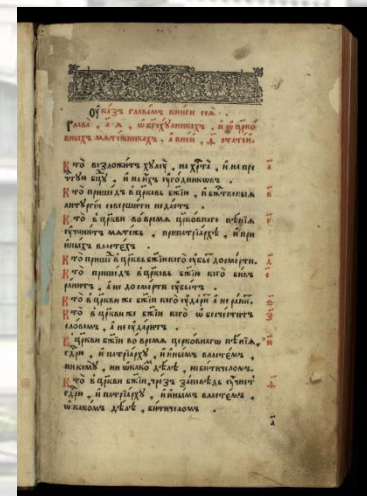 Ѹка́зъ главамъ книги сея̀ .
Глава , а҃-я , ѡ бг҃охꙋлникахъ , и ѡ цр҃ко
вныхъ мѧте́жникахъ , а в не́й , ѳ҃ стате́й .
Кто̀ возложитъ хꙋлꙋ̀ , на хр҃та̀ , и на пре
ч҃тꙋю бц҃ꙋ , и на и́хъ ᲂу҆го́дниковъ .
Кто̀ прише́дъ в цр҃ковь бж҃ію , и бж҃твеныя
литꙋргіи соверши́ти неда́стъ .
Кто̀ в цр҃кви во время црко́внаго пѣ́нія
ᲂу҆чини́тъ мяте́жъ , при патріа́рхѣ , и при
и́ныхъ власте́хъ .
Кто̀ прише́ в цр҃ковь бж҃ію кого̀ ᲂу҆бье́ до смерти .
Кто̀ прише́дъ в цр҃ковь бж҃ію кого̀ бивъ
ра́нитъ , а не до смерти ᲂу҆бье́тъ .
Кто̀ в цр҃кви же бж҃іи кого̀ ᲂу҆да́ри а не ра́ни .
Кто̀ в цр҃кви же бж҃іи кого̀ ѡбезче́ститъ
сло́вомъ , а не ᲂу҆да́ритъ .
В цр҃кви бж҃іи во время церко́внагѡ пѣ́нія ,
гд҃рю , и патріа́рхꙋ , и и́нымъ власте́мъ ,
никомꙋ̀ , ни ѡ како́ дѣ́лѣ , не би́ти чело́мъ .
Кто̀ в цр҃кви бж҃іи , чрез̾ за́повѣдь ᲂу҆чне́тъ
гд҃рю , и патріа́рхꙋ , и и́нымъ власте́мъ ,
ѡ како́мъ дѣ́лѣ , би́ти чело́мъ .